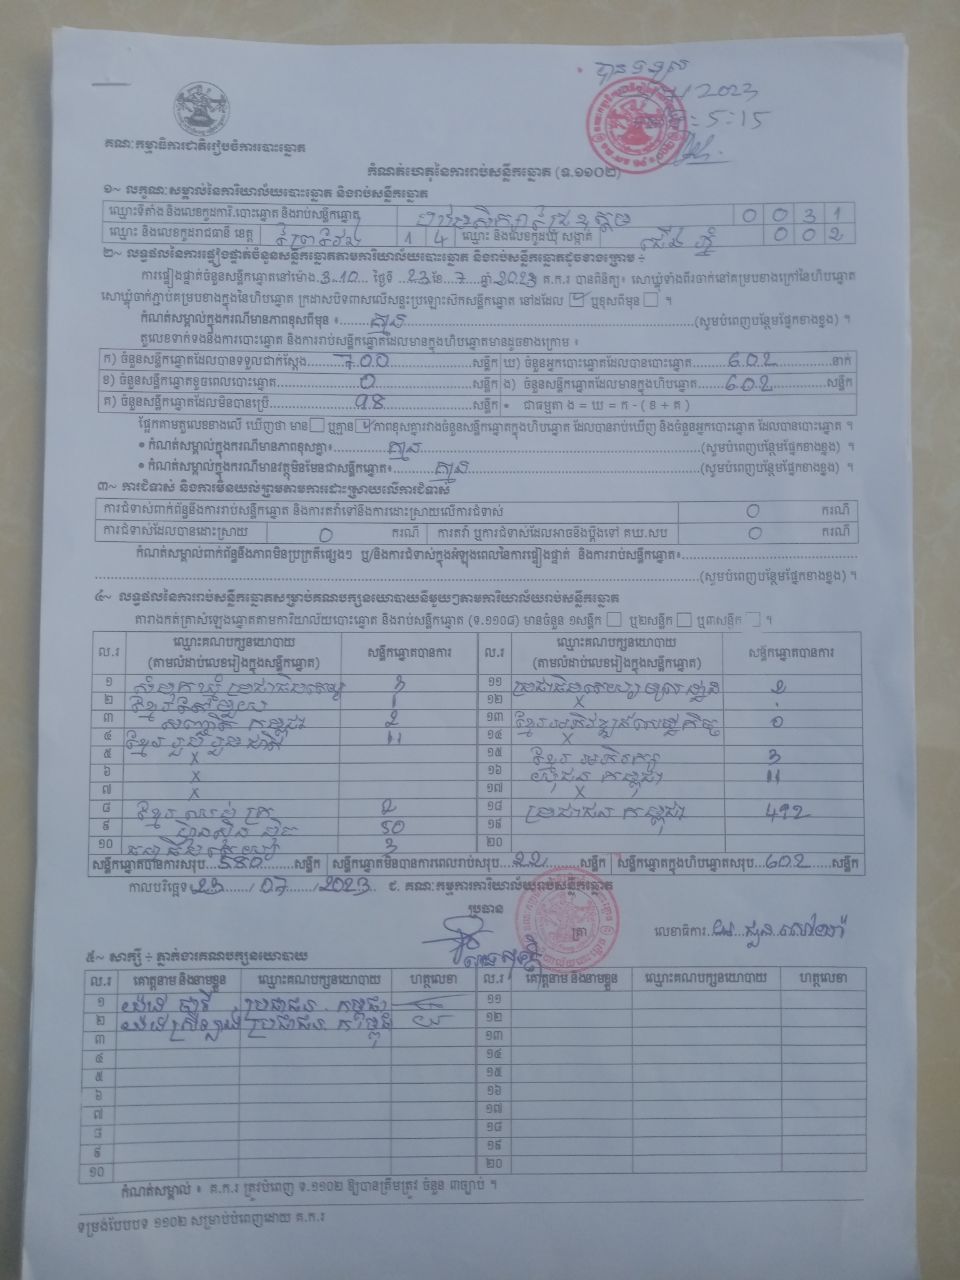 បានទទួល
2023
ម៉ោង: 5:15
គណៈកម្មាធិការជាតិរៀបចំការបោះឆ្នោត
កំណត់ហេតុនៃការរាប់សន្លឹកឆ្នោត (ទ.១១០២)
១~ លក្ខណៈសម្គាល់នៃការិយាល័យបោះឆ្នោត និងរាប់សន្លឹកឆ្នោត
ឈ្មោះទីតាំង និងលេខកូដការិ.បោះឆ្នោត និងរាប់សន្លឹកឆ្នោត 0 0 3 1
ឈ្មោះ និងលេខកូដរាជធានី ខេត្ត ព្រៃវែង 1 4 ឈ្មោះ និងលេខកូដឃុំ សង្កាត់ ជើងភ្នំ 0 0 2
២~ លទ្ធផលនៃការផ្ទៀងផ្ទាត់ចំនួនសន្លឹកឆ្នោតតាមការិយាល័យបោះឆ្នោត និងរាប់សន្លឹកឆ្នោតដូចខាងក្រោម ÷
ការផ្ទៀងផ្ទាត់ចំនួនសន្លឹកឆ្នោតនៅម៉ោង.3.10... ថ្ងៃទី ..23.ខែ..7.. ឆ្នាំ.2023 គ.ក.រ បានពិនិត្យ៖ សោឃ្លុំទាំងពីរចាក់នៅគម្របខាងក្រៅនៃហិបឆ្នោត
សោឃ្លុំចាក់ភ្ជាប់គម្របខាងក្នុងនៃហិបឆ្នោត ក្រដាសបិទពាសលើសន្ទះប្រឡោះសឹកសន្លឹកឆ្នោត នៅដដែល ☑ ឬខុសពីមុន ☐ ។
កំណត់សម្គាល់ក្នុងករណីមានភាពខុសពីមុន ៖........គ្មាន........(សូមបំពេញបន្ថែមផ្នែកខាងខ្នង) ។
តួលេខទាក់ទងនឹងការបោះឆ្នោត និងការរាប់សន្លឹកឆ្នោតដែលមានក្នុងហិបឆ្នោតមានដូចខាងក្រោម ៖
ក) ចំនួនសន្លឹកឆ្នោតដែលបានទទួលជាក់ស្តែង........700........សន្លឹក ឃ) ចំនួនអ្នកបោះឆ្នោតដែលបានបោះឆ្នោត........602........នាក់
ខ) ចំនួនសន្លឹកឆ្នោតខូចពេលបោះឆ្នោត........0........សន្លឹក ង) ចំនួនសន្លឹកឆ្នោតដែលមានក្នុងហិបឆ្នោត........602........សន្លឹក
គ) ចំនួនសន្លឹកឆ្នោតដែលមិនបានប្រើ........98........សន្លឹក • ជាធម្មតា ង = ឃ = ក - ( ខ + គ )
ផ្អែកតាមតួលេខខាងលើ ឃើញថា មាន ☐ ឬគ្មាន ☑ ភាពខុសគ្នារវាងចំនួនសន្លឹកឆ្នោតក្នុងហិបឆ្នោត ដែលបានរាប់ឃើញ និងចំនួនអ្នកបោះឆ្នោត ដែលបានបោះឆ្នោត ។
• កំណត់សម្គាល់ក្នុងករណីមានភាពខុសគ្នា៖........គ្មាន........(សូមបំពេញបន្ថែមផ្នែកខាងខ្នង) ។
• កំណត់សម្គាល់ក្នុងករណីមានវត្ថុមិនមែនជាសន្លឹកឆ្នោត៖........គ្មាន........(សូមបំពេញបន្ថែមផ្នែកខាងខ្នង) ។
៣~ ការជំទាស់ និងការមិនយល់ព្រមតាមការដោះស្រាយលើការជំទាស់
ការជំទាស់ពាក់ព័ន្ធនឹងការរាប់សន្លឹកឆ្នោត និងការតវ៉ាទៅនឹងការដោះស្រាយលើការជំទាស់ 0 ករណី
ការជំទាស់ដែលបានដោះស្រាយ 0 ករណី ការតវ៉ា ឬការជំទាស់ដែលអាចនឹងប្តឹងទៅ គឃ.សប 0 ករណី
កំណត់សម្គាល់ពាក់ព័ន្ធនឹងភាពមិនប្រក្រតីផ្សេងៗ ឬ/និងការជំទាស់ក្នុងអំឡុងពេលនៃការផ្ទៀងផ្ទាត់ និងការរាប់សន្លឹកឆ្នោត៖........
........(សូមបំពេញបន្ថែមផ្នែកខាងខ្នង) ។
៤~ លទ្ធផលនៃការរាប់សន្លឹកឆ្នោតសម្រាប់គណបក្សនយោបាយនីមួយៗតាមការិយាល័យរាប់សន្លឹកឆ្នោត
តារាងកត់ត្រាសំឡេងឆ្នោតតាមការិយាល័យបោះឆ្នោត និងរាប់សន្លឹកឆ្នោត (ទ.១១០៨) មានចំនួន ១សន្លឹក ☐ ឬ២សន្លឹក ☐ ឬ៣សន្លឹក ☐ ។
ល.រ ឈ្មោះគណបក្សនយោបាយ (តាមលំដាប់លេខរៀងក្នុងសន្លឹកឆ្នោត) សន្លឹកឆ្នោតបានការ ល.រ ឈ្មោះគណបក្សនយោបាយ (តាមលំដាប់លេខរៀងក្នុងសន្លឹកឆ្នោត) សន្លឹកឆ្នោតបានការ
១ សំបុកឃ្មុំ 3 ១១ 2
២ ១២ X
៣ កម្ពុជា 2 ១៣ 0
៤ ខ្មែររួបរួមជាតិ 11 ១៤ X
៥ X ១៥ ខ្មែរអភិរក្ស 3
៦ X ១៦ យុវជនកម្ពុជា 11
៧ X ១៧ X
៨ 2 ១៨ ប្រជាជនកម្ពុជា 492
៩ ហ៊្វុនស៊ិនប៉ិច 50 ១៩
១០ 3 ២០
សន្លឹកឆ្នោតបានការសរុប...580...សន្លឹក សន្លឹកឆ្នោតមិនបានការពេលរាប់សរុប...22...សន្លឹក សន្លឹកឆ្នោតក្នុងហិបឆ្នោតសរុប...602...សន្លឹក
កាលបរិច្ឆេទ 23/07/2023 ជ. គណៈកម្មការការិយាល័យរាប់សន្លឹកឆ្នោត
ប្រធាន
ត្រា លេខាធិការ
៥~ សាក្សី ÷ ភ្នាក់ងារគណបក្សនយោបាយ
ល.រ គោត្តនាម និងនាមខ្លួន ឈ្មោះគណបក្សនយោបាយ ហត្ថលេខា ល.រ គោត្តនាម និងនាមខ្លួន ឈ្មោះគណបក្សនយោបាយ ហត្ថលេខា
១ ប្រជាជនកម្ពុជា ១១
២ ប្រជាជនកម្ពុជា ១២
៣ ១៣
៤ ១៤
៥ ១៥
៦ ១៦
៧ ១៧
៨ ១៨
៩ ១៩
១០ ២០
កំណត់សម្គាល់ ៖ គ.ក.រ ត្រូវបំពេញ ទ.១១០២ ឱ្យបានត្រឹមត្រូវ ចំនួន ៣ច្បាប់ ។
ទម្រង់បែបបទ ១១០២ សម្រាប់បំពេញដោយ គ.ក.រ